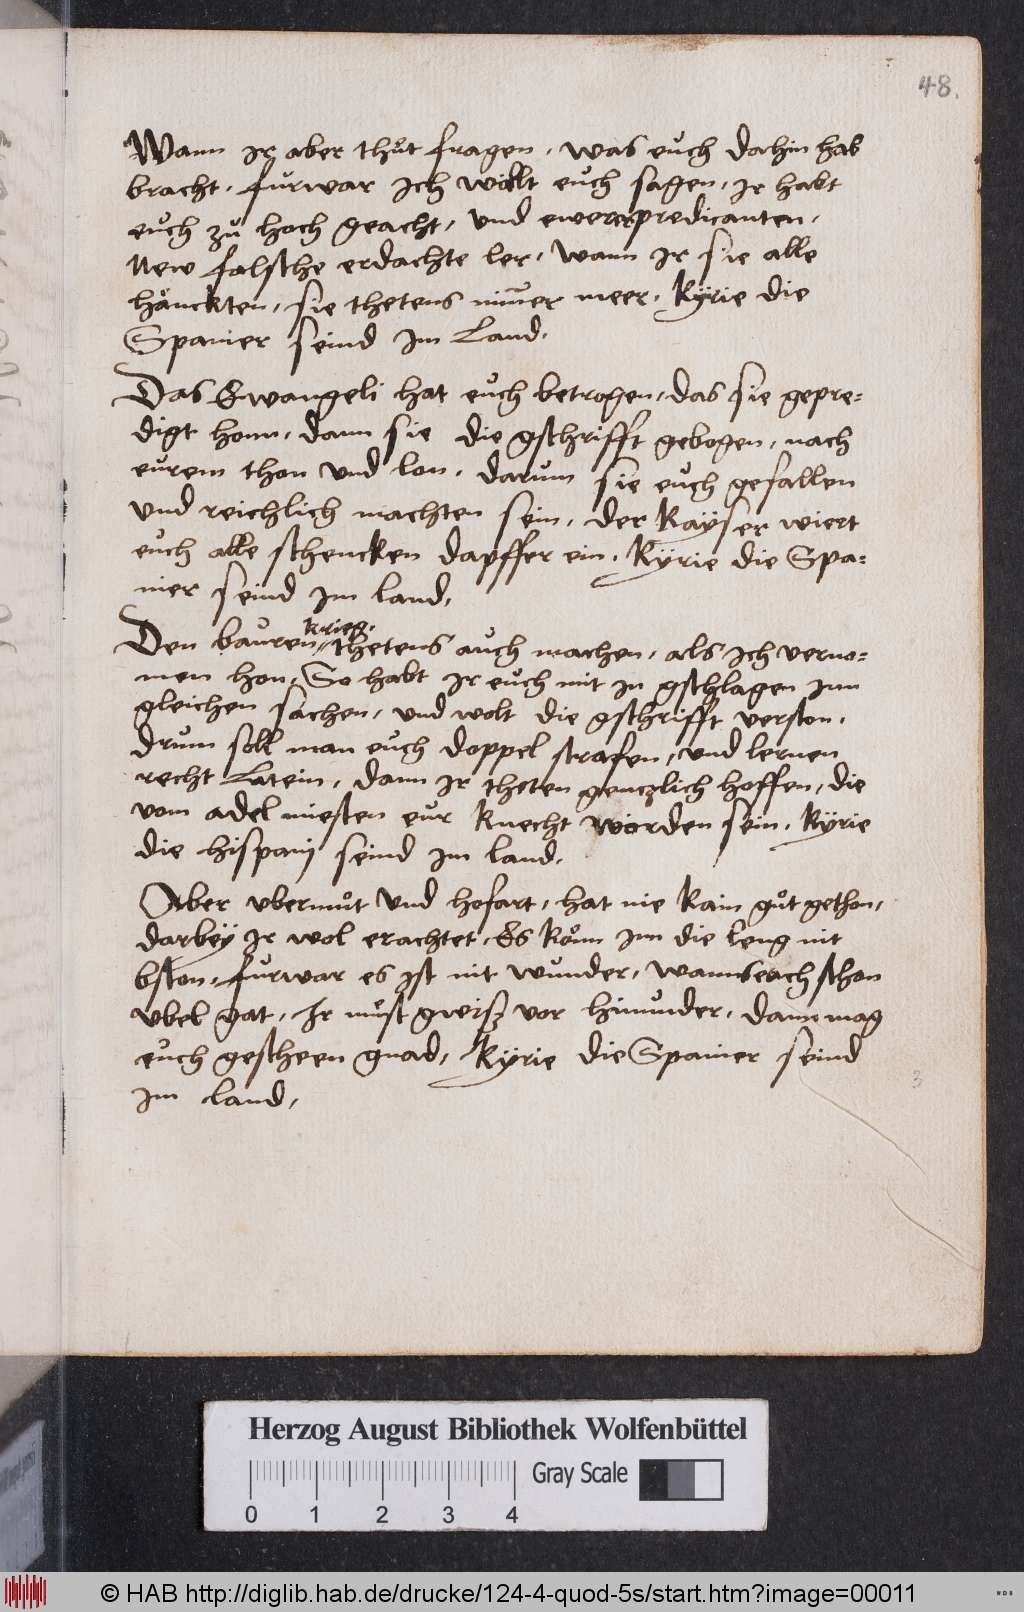 48.
Wann ir aber thůt fragen, was euch dahin hab
bracht, furwar ich wollt euch sagen, ir habt
euch zů hoch geacht, und ewerer predicanten,
New falsche erdachte ler, wann ir sie alle
hänckten, sie thetens nim̄er meer, Kÿrie die
Spanier seind im Land.
Das Ewangeli hat euch betrogen, das sie gepre=
digt honn, dann sie die gschrifft gebogen, nach
eurem thon und lon, darum sie euch gefallen
und reichlich machten sein, der Kaÿser wiert
euch alle schencken dapffer ein, Kÿrie die Spa=
nier seind im land,
krieg.
Den bauren thetens auch machen, als ich verno=
men hon, So habt ir euch mit in gschlagen inn
gleichen sachen, und wolt die gschrifft verston,
drum soll man euch doppel strafen, und lernen
recht Latein, dann ir theten genczlich hoffen, die
vom adel miesten eur knecht worden sein, Kÿrie
die hispanj seind im land,
Aber ubermůt und hofart, hat nie kain gůt gethon,
darbeÿ ir wol erachtet, Es könn inn die leng nit
bston, furwar es ist nit wunder, wanns euch schon
ubel gat, Ir můst gwisz vor hinunder, dann mag
euch gescheen gnad, Kÿrie die Spanier seind
im land,
3
Herzog August Bibliothek Wolfenbüttel
Gray Scale
0 1 2 3 4
© HAB http://diglib.hab.de/drucke/124-4-quod-5s/start.htm?image=00011